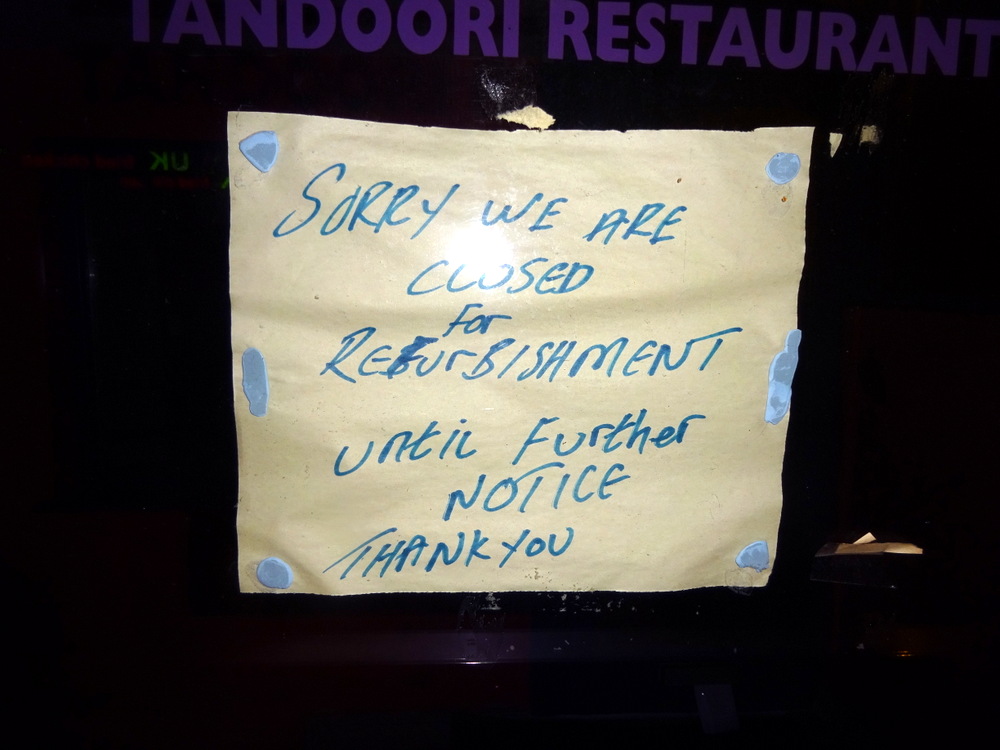 TANDOORI RESTAURANT
UK
SORRY WE ARE
CLOSED
For
REFURBISHMENT
until Further
NOTICE
THANK YOU